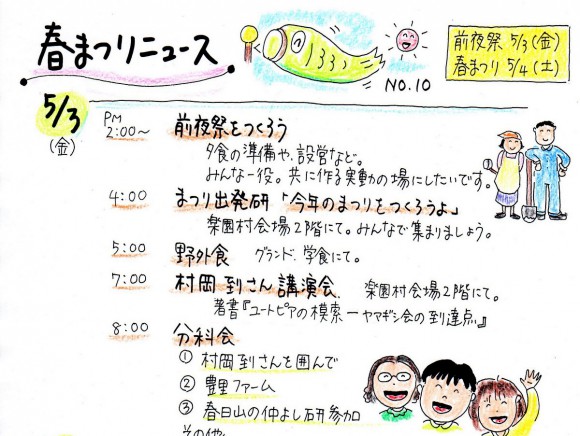 春まつりニュース
NO.10
前夜祭 5/3(金)
春まつり 5/4(土)
5/3
(金)
PM
2:00~ 前夜祭をつくろう
夕食の準備や、設営など。
みんな一役。共に作る実動の場にしたいです。
4:00 まつり出発研「今年のまつりをつくろうよ」
楽園村会場2階にて。みんなで集まりましょう。
5:00 野外食 グランド、学食にて。
7:00 村岡到さん講演会 楽園村会場2階にて。
著書『ユートピアの模索ーヤマギシ会の到達点』
8:00 分科会
① 村岡到さんを囲んで
② 豊里ファーム
③ 春日山の仲よし研参加
その他